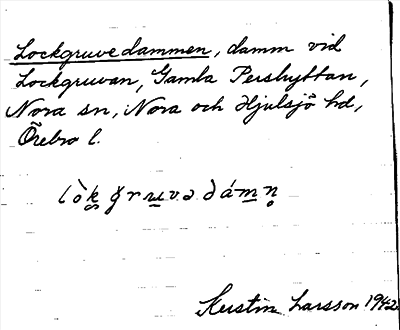 Lockgruvedammen, damm vid
Lockgruvan, Gamla Pershyttan,
Nora sn, Nora och Hjulsjö hd,
Örebro l.
lòk̯gru̲vədám̲n̥
Kerstin Larsson 1942.